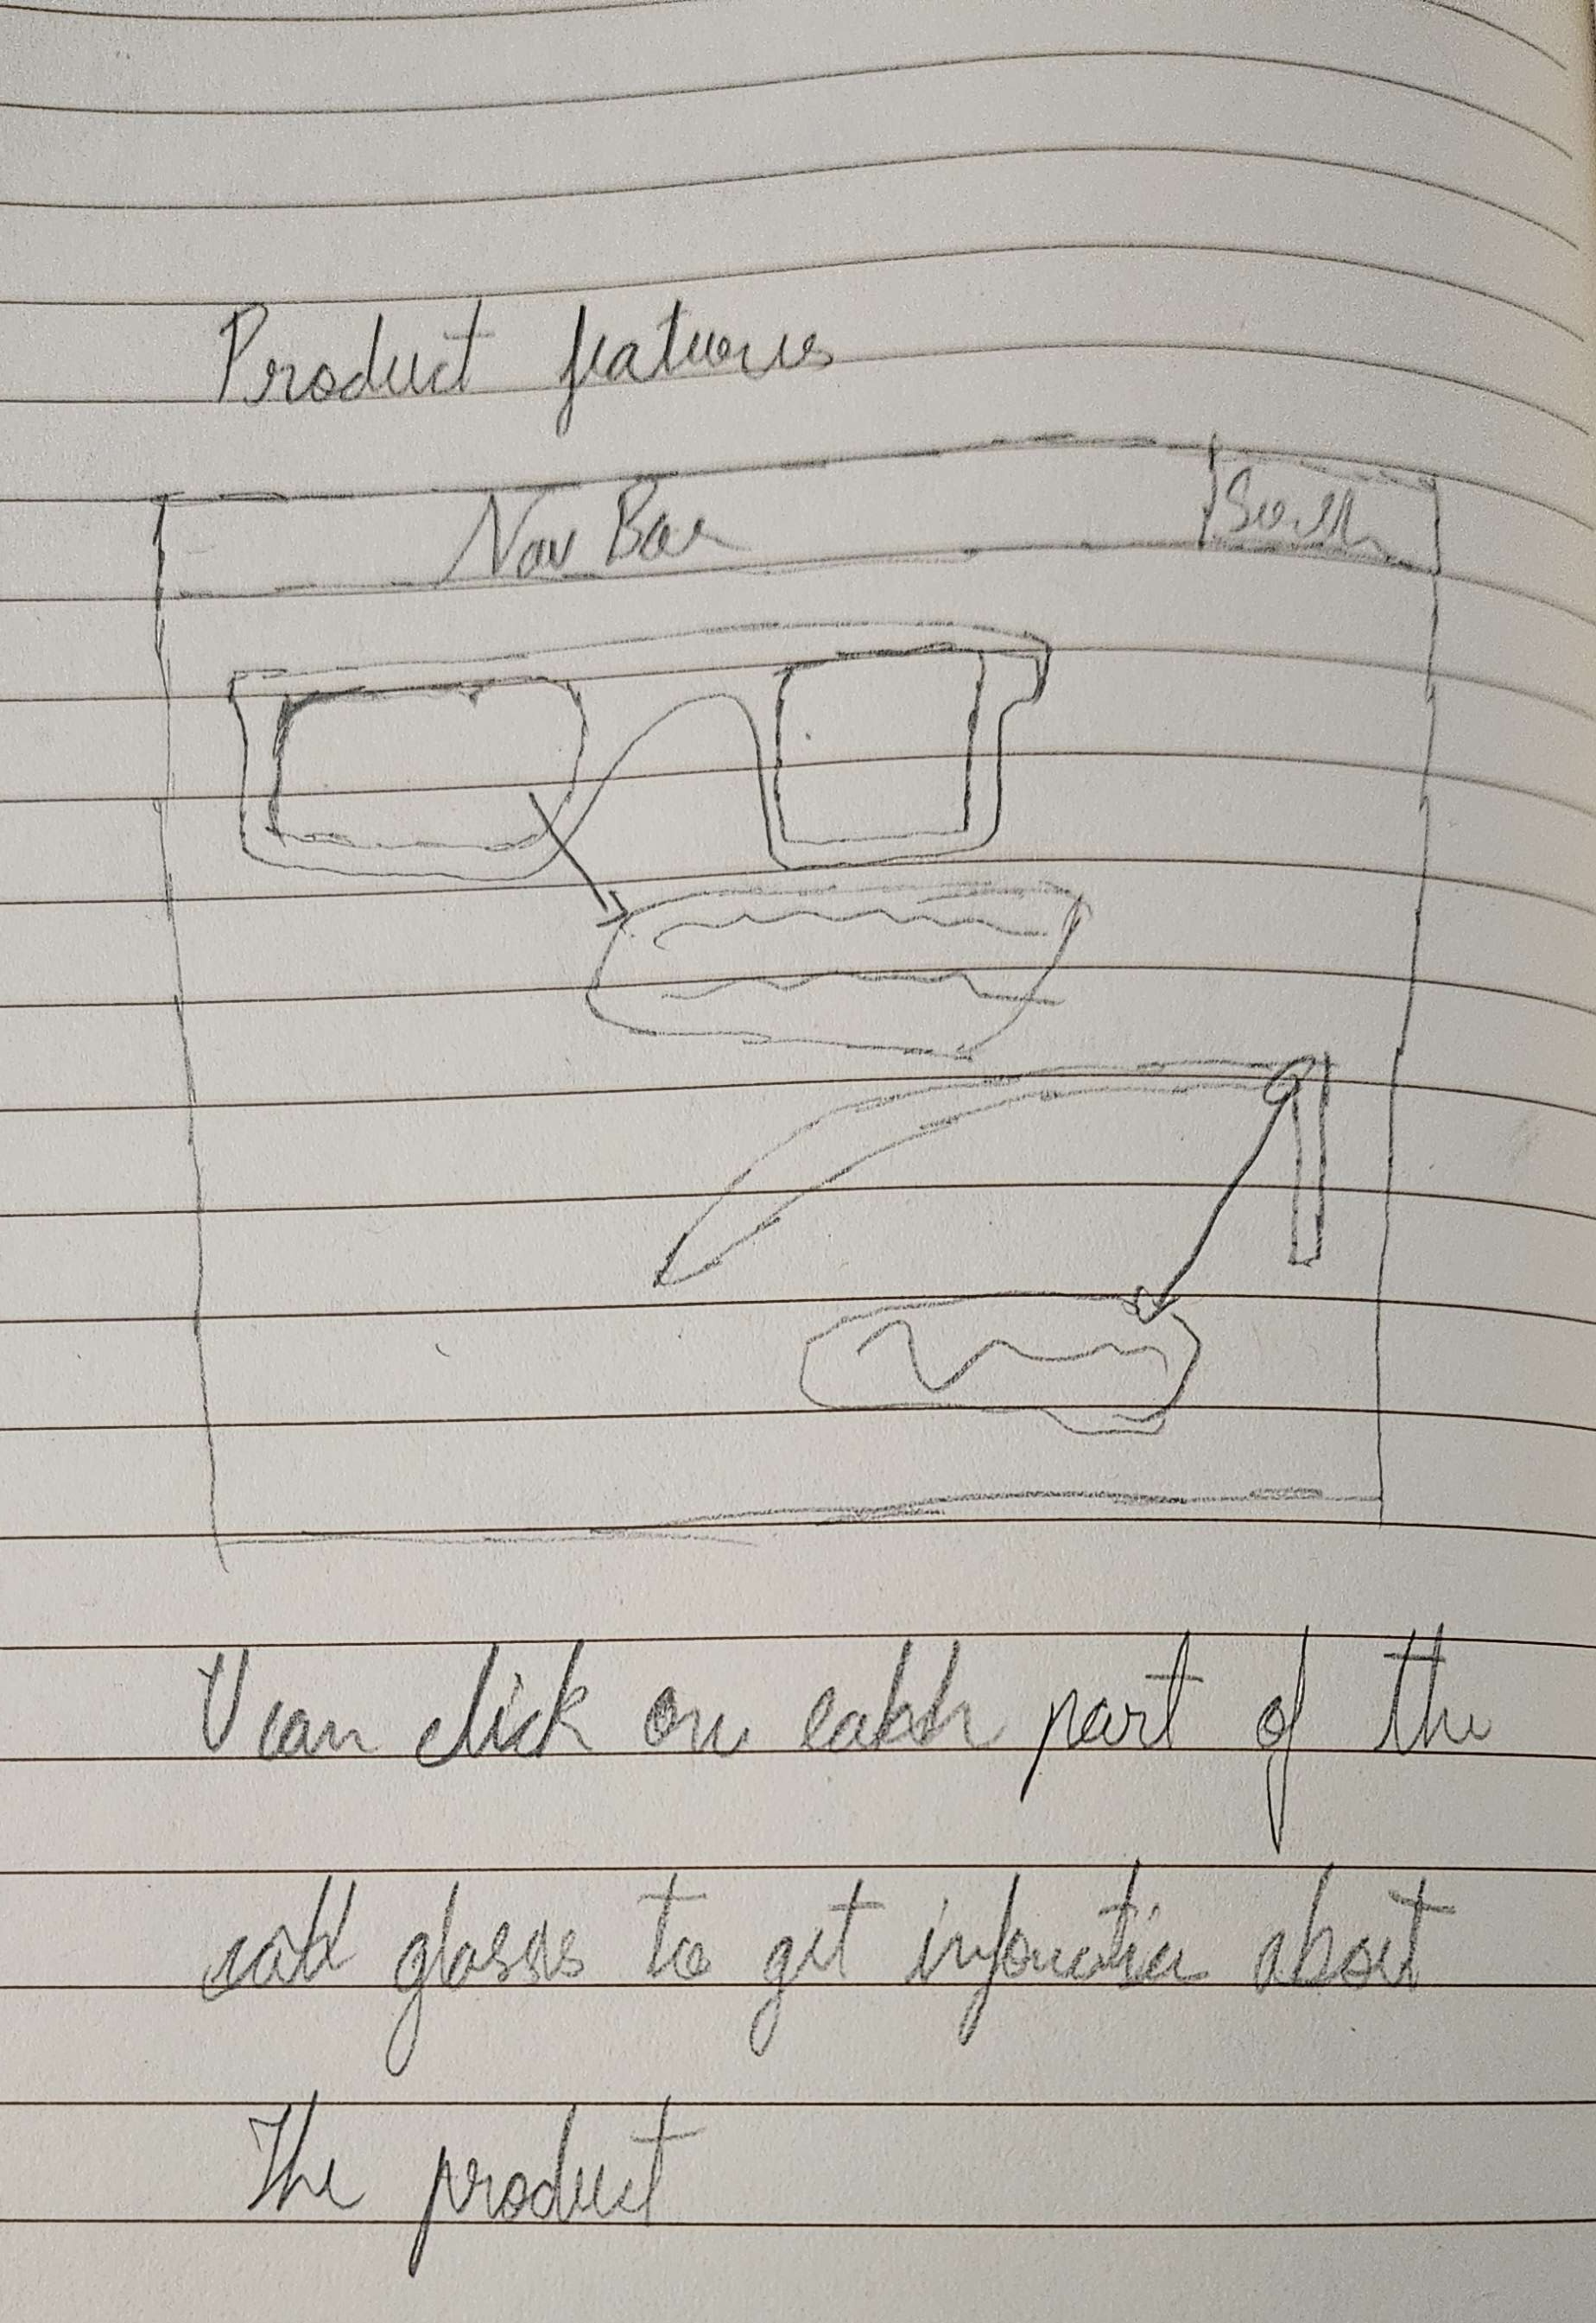 Product features
Nav Bar Search
U can click on each part of the
glasses to get information about
The product